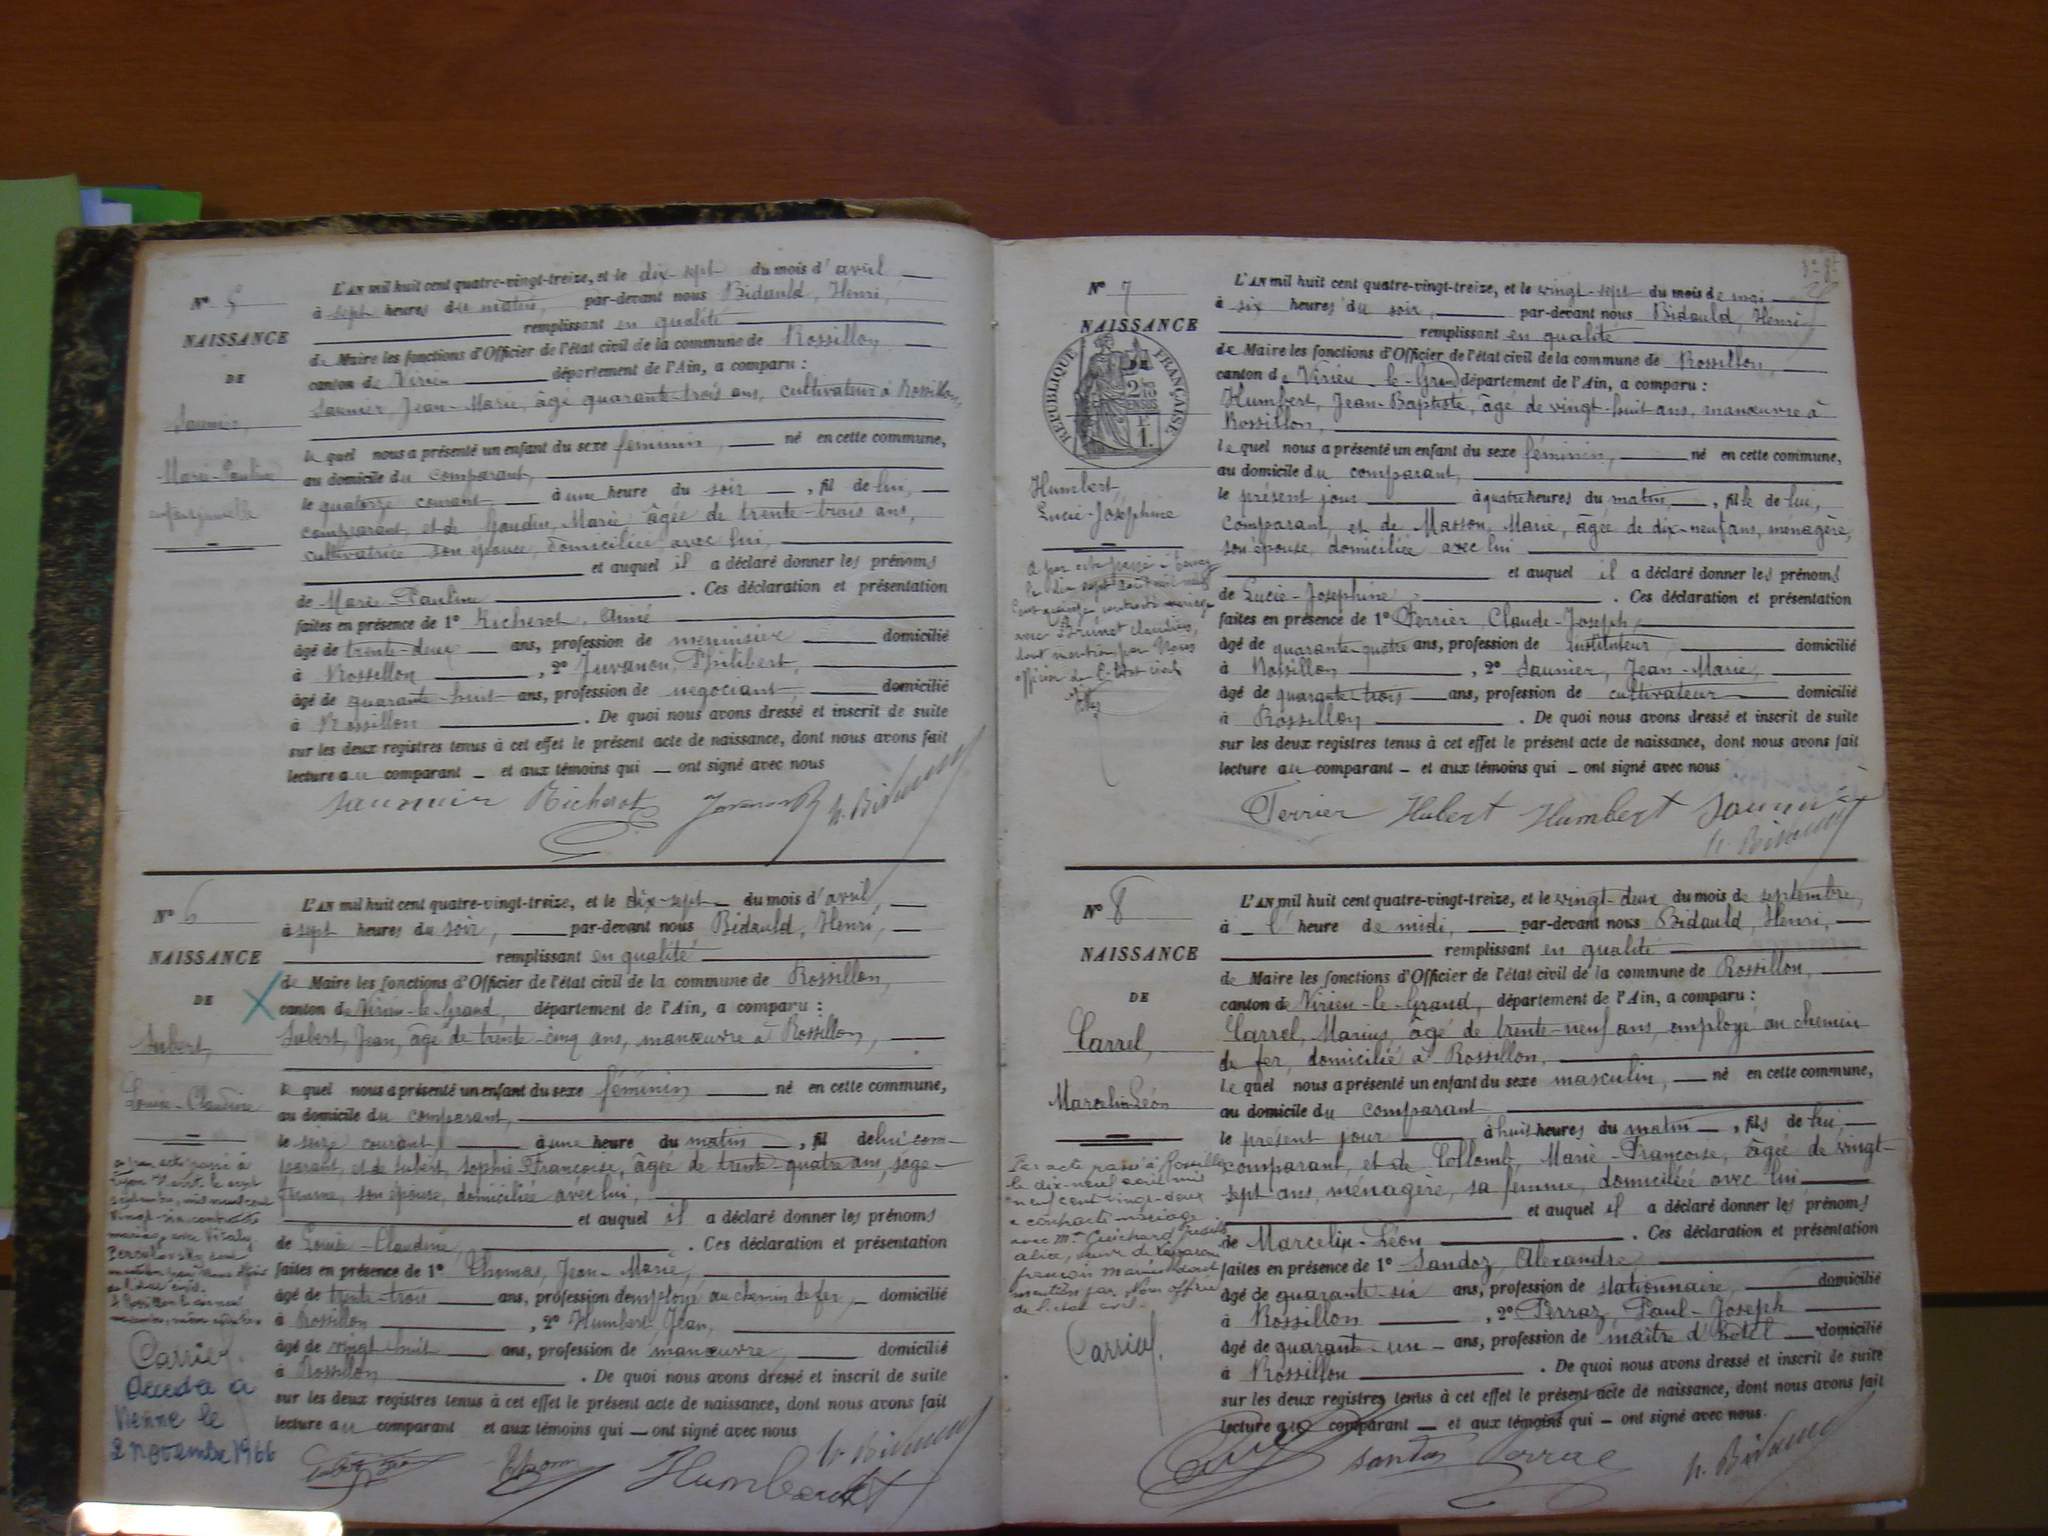 N° 5
NAISSANCE
DE
Saunier,
Marie-Pauline
enfant jumelle
L'AN mil huit cent quatre-vingt-treize, et le dix-sept du mois d'avril
à sept heures du matin, par-devant nous Bidauld, Henri,
remplissant en qualité
de Maire les fonctions d'Officier de l'état civil de la commune de Rossillon,
canton de Virieu département de l'Ain, a comparu :
Saunier, Jean-Marie, âgé quarante-trois ans, cultivateur à Rossillon,
le quel nous a présenté un enfant du sexe féminin, né en cette commune,
au domicile du comparant,
le quatorze courant à une heure du soir, fil de lui,
comparant, et de Gaudin, Marie, âgée de trente-trois ans,
cultivatrice son épouse, domiciliée avec lui,
et auquel il a déclaré donner les prénoms
de Marie Pauline. Ces déclaration et présentation
faites en présence de 1° Richerot, Aimé
âgé de trente-deux ans, profession de menuisier domicilié
à Rossillon, 2° Juvanon, Philibert,
âgé de quarante-huit ans, profession de négociant, domicilié
à Rossillon. De quoi nous avons dressé et inscrit de suite
sur les deux registres tenus à cet effet le présent acte de naissance, dont nous avons fait
lecture au comparant et aux témoins qui ont signé avec nous
Saunier Richerot H. Bidauld
N° 6
NAISSANCE
DE
Hubert,
Louise-Claudine
L'AN mil huit cent quatre-vingt-treize, et le dix-sept du mois d'avril,
à sept heures du soir, par-devant nous Bidauld, Henri,
remplissant en qualité
de Maire les fonctions d'Officier de l'état civil de la commune de Rossillon,
canton de Virieu-le-Grand, département de l'Ain, a comparu :
Hubert, Jean, âgé de trente-cinq ans, manœuvre à Rossillon,
le quel nous a présenté un enfant du sexe féminin né en cette commune,
au domicile du comparant,
le seize courant à une heure du matin, fil de lui com-
parant, et de Hubert, Sophie Françoise, âgée de trente-quatre ans, sage-
femme, son épouse, domiciliée avec lui,
et auquel il a déclaré donner les prénoms
de Louise-Claudine,. Ces déclaration et présentation
faites en présence de 1° Thomas, Jean-Marie,
âgé de trente-trois ans, profession d'employé au chemin de fer, domicilié
à Rossillon, 2° Humbert, Jean,
âgé de vingt-huit ans, profession de manœuvre, domicilié
à Rossillon. De quoi nous avons dressé et inscrit de suite
sur les deux registres tenus à cet effet le présent acte de naissance, dont nous avons fait
lecture au comparant et aux témoins qui ont signé avec nous
Humbert H. Bidauld
par acte passé à
Lyon le sept
septembre, mil neuf cent
vingt-six contracté
mariage avec
Carrier
Décédée à
Vienne le
2 novembre 1966
N° 7
NAISSANCE
DE
RÉPUBLIQUE FRANÇAISE
Humbert,
Lucie-Joséphine
L'AN mil huit cent quatre-vingt-treize, et le vingt-sept du mois de mai
à six heures du soir, par-devant nous Bidauld, Henri
remplissant en qualité
de Maire les fonctions d'Officier de l'état civil de la commune de Rossillon,
canton de Virieu-le-Grand département de l'Ain, a comparu :
Humbert, Jean-Baptiste, âgé de vingt-huit ans, manœuvre à
Rossillon,
le quel nous a présenté un enfant du sexe féminin, né en cette commune,
au domicile du comparant,
le présent jour à quatre heures du matin, fille de lui,
comparant, et de Masson, Marie, âgée de dix-neuf ans, ménagère,
son épouse, domiciliée avec lui
et auquel il a déclaré donner les prénoms
de Lucie-Joséphine. Ces déclaration et présentation
faites en présence de 1° Perrier, Claude-Joseph,
âgé de quarante-quatre ans, profession de instituteur, domicilié
à Rossillon, 2° Saunier, Jean-Marie,
âgé de quarante-trois ans, profession de cultivateur domicilié
à Rossillon. De quoi nous avons dressé et inscrit de suite
sur les deux registres tenus à cet effet le présent acte de naissance, dont nous avons fait
lecture au comparant et aux témoins qui ont signé avec nous
Ferrier Hubert Humbert Saunier
H. Bidauld
le dix sept août mil neuf
cent quinze contracté mariage
avec Brunet Claudius,
dont mention par Nous
officier de l'état civil
N° 8
NAISSANCE
DE
Carrel,
Marcelin-Léon
L'AN mil huit cent quatre-vingt-treize, et le vingt-deux du mois de septembre,
à l'heure de midi, par-devant nous Bidauld, Henri,
remplissant en qualité
de Maire les fonctions d'Officier de l'état civil de la commune de Rossillon,
canton de Virieu-le-Grand, département de l'Ain, a comparu :
Carrel, Marius, âgé de trente-neuf ans, employé au chemin
de fer, domicilié à Rossillon,
le quel nous a présenté un enfant du sexe masculin, né en cette commune,
au domicile du comparant
le présent jour à huit heures du matin, fils de lui,
comparant, et de Collomb, Marie-Françoise, âgée de vingt-
sept ans, ménagère, sa femme, domiciliée avec lui
et auquel il a déclaré donner les prénoms
de Marcelin-Léon. Ces déclaration et présentation
faites en présence de 1° Sandoz, Alexandre,
âgé de quarante-six ans, profession de stationnaire, domicilié
à Rossillon, 2° Perraz, Paul-Joseph
âgé de quarante-un ans, profession de maître d'hôtel domicilié
à Rossillon. De quoi nous avons dressé et inscrit de suite
sur les deux registres tenus à cet effet le présent acte de naissance, dont nous avons fait
lecture au comparant et aux témoins qui ont signé avec nous.
Sandoz Perraz H. Bidauld
Par acte passé à Rossillon
le dix-neuf avril mil
neuf cent vingt-deux
a contracté mariage
avec Mme Guichard
alice, veuve de
françois Marius dont
mention par Nous officier
de l'état civil.
Carrier